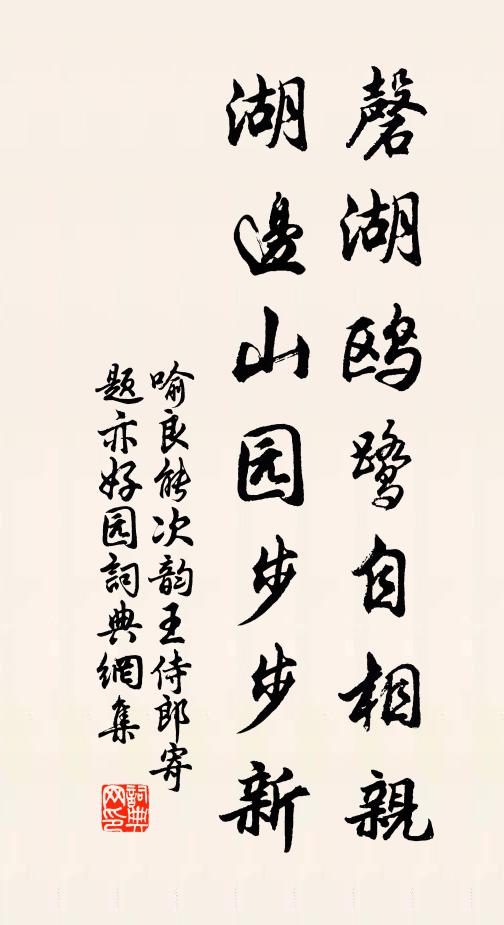 罄湖鸥鹭自相親
湖邊山园步步新
喻良能次韵王侍郎寄
题亦好园詞典網集
詞典
网印